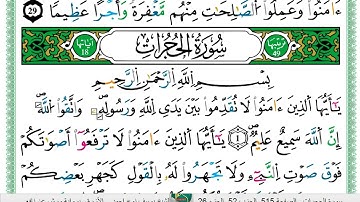 ءَامَنُوا۟ وَعَمِلُوا۟ ٱلصَّـٰلِحَـٰتِ مِنْهُم مَّغْفِرَةً وَأَجْرًا عَظِيمًۢا 29
ترتيبها 49 سُورَةُ الْحُجُرَاتِ آياتها 18
بِسْمِ ٱللَّهِ ٱلرَّحْمَـٰنِ ٱلرَّحِيمِ
يَـٰٓأَيُّهَا ٱلَّذِينَ ءَامَنُوا۟ لَا تُقَدِّمُوا۟ بَيْنَ يَدَىِ ٱللَّهِ وَرَسُولِهِۦ وَٱتَّقُوا۟ ٱللَّهَ
إِنَّ ٱللَّهَ سَمِيعٌ عَلِيمٌ يَـٰٓأَيُّهَا ٱلَّذِينَ ءَامَنُوا۟ لَا تَرْفَعُوٓا۟ أَصْوَٰتَكُمْ
فَوْقَ صَوْتِ ٱلنَّبِىِّ وَلَا تَجْهَرُوا۟ لَهُۥ بِٱلْقَوْلِ كَجَهْرِ بَعْضِكُمْ
الصفحة 515 الجزء 26